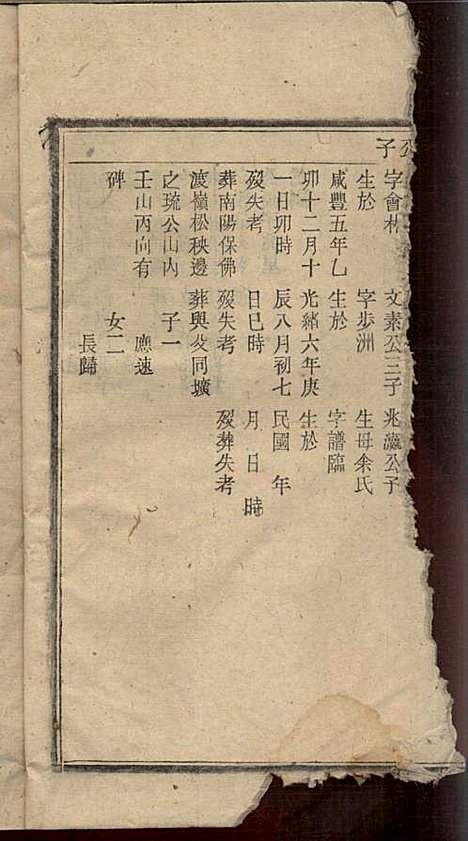 子
字會林
生於
咸豐五年乙
卯十二月十
一日卯時
歿失考
葬南陽保佛
渡嶺松秧邊
之琉公山內
壬山丙向有
碑
文素公三子
字步洲
生於
光緒六年庚
辰八月初七
日巳時
歿失考
葬與父同壙
子一
應速
女二
長歸
兆瀛公子
生母余氏
字譜臨
生於
民國 年
月 日 時
歿葬失考